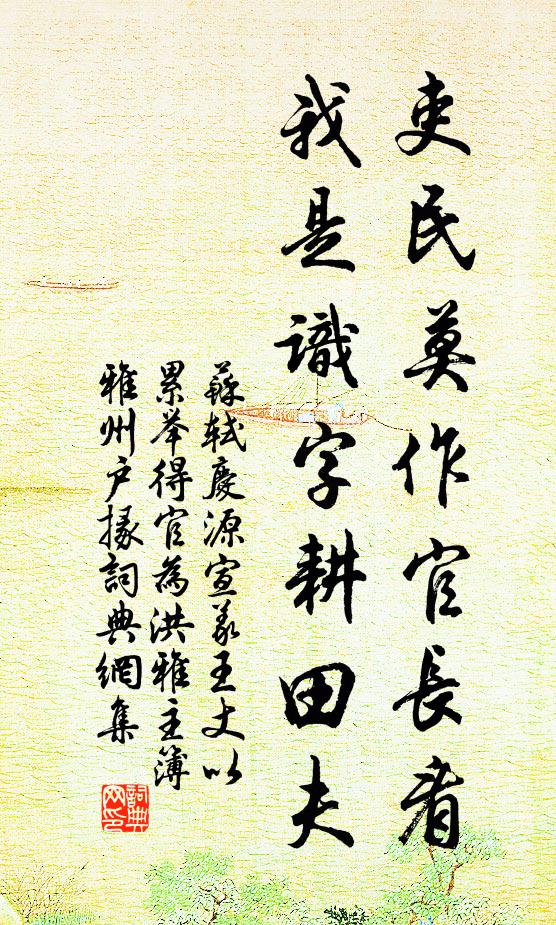 吏民莫作官長看
我是識字耕田夫
蘇軾慶源宣義王丈以
累舉得官為洪雅主簿
雅州戶掾詞典網集
詞典
网印